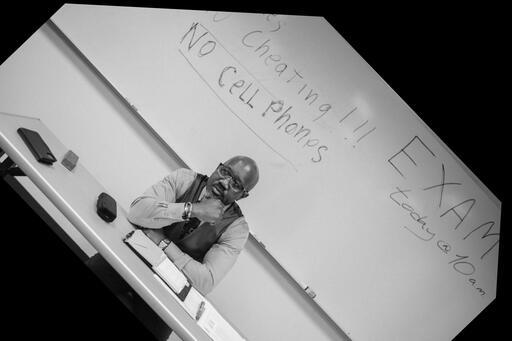 Cheating!!!
NO CELL PHONES
EXAM
today @ 10am